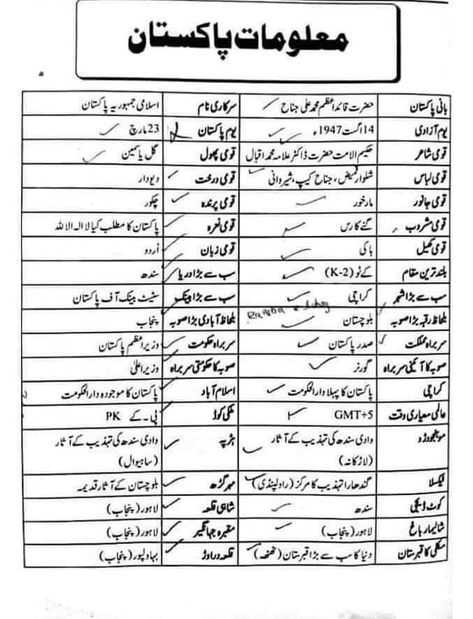 معلومات پاکستان
بانی پاکستان حضرت قائداعظم محمد علی جناح سرکاری نام اسلامی جمہوریہ پاکستان
یوم آزادی 14 اگست 1947ء یوم پاکستان 23 مارچ
قومی شاعر حکیم الامت حضرت ڈاکٹر علامہ محمد اقبال قومی پھول گل یاسمین
قومی لباس شلوار قمیض، جناح کیپ، شیروانی قومی درخت دیودار
قومی جانور مارخور قومی پرندہ چکور
قومی مشروب گنے کا رس قومی نعرہ پاکستان کا مطلب کیا لا الہ الا اللہ
قومی کھیل ہاکی قومی زبان اُردو
بلند ترین مقام کے ٹو (K-2) سب سے بڑا دریا سندھ
سب سے بڑا شہر کراچی سب سے بڑا بینک سٹیٹ بینک آف پاکستان
بلحاظ رقبہ بڑا صوبہ بلوچستان بلحاظ آبادی بڑا صوبہ پنجاب
سربراہ مملکت صدر پاکستان سربراہ حکومت وزیراعظم پاکستان
صوبہ کا آئینی سربراہ گورنر صوبہ کا حکومتی سربراہ وزیراعلیٰ
کراچی پاکستان کا پہلا دارالحکومت اسلام آباد پاکستان کا موجودہ دارالحکومت
عالمی معیاری وقت GMT+5 ملکی کوڈ پی۔کے PK
موہنجوداڑو وادی سندھ کی تہذیب کے آثار (لاڑکانہ) ہڑپہ وادی سندھ کی تہذیب کے آثار (ساہیوال)
ٹیکسلا گندھارا تہذیب کا مرکز (راولپنڈی) مہرگڑھ بلوچستان کے آثار قدیمہ
کوٹ ڈیجی سندھ شاہی قلعہ لاہور (پنجاب)
شالیمار باغ لاہور (پنجاب) مقبرہ جہانگیر لاہور (پنجاب)
مکلی کا قبرستان دنیا کا سب سے بڑا قبرستان (ٹھٹھہ) قلعہ دراوڑ بہاولپور (پنجاب)